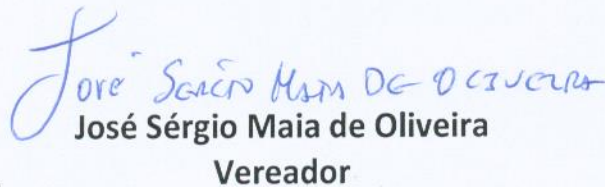 José Sérgio Maia DE OLIVEIRA
José Sérgio Maia de Oliveira
Vereador